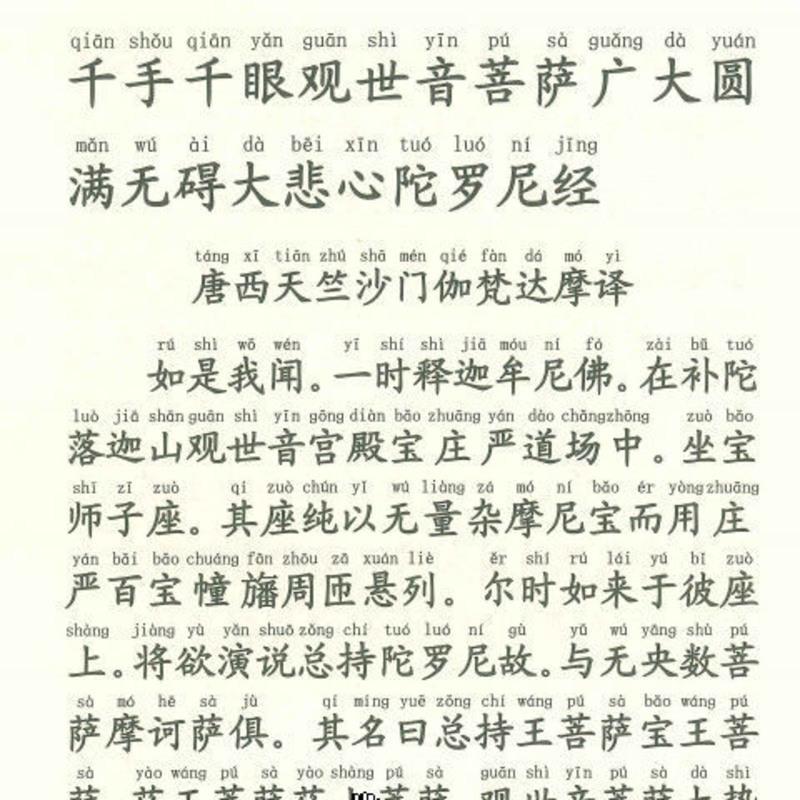 qiān shǒu qiān yǎn guān shì yīn pú sà guǎng dà yuán
千手千眼观世音菩萨广大圆
mǎn wú ài dà bēi xīn tuó luó ní jīng
满无碍大悲心陀罗尼经
táng xī tiān zhú shā mén qié fàn dá mó yì
唐西天竺沙门伽梵达摩译
rú shì wǒ wén yī shí shì jiā móu ní fó zài bǔ tuó
如是我闻。一时释迦牟尼佛。在补陀
luò jiā shān guān shì yīn gōng diàn bǎo zhuāng yán dào chǎng zhōng zuò bǎo
落迦山观世音宫殿宝庄严道场中。坐宝
shī zǐ zuò qí zuò chún yǐ wú liàng zá mó ní bǎo ér yòng zhuāng
师子座。其座纯以无量杂摩尼宝而用庄
yán bǎi bǎo chuáng fān zhōu zā xuán liè ěr shí rú lái yú bǐ zuò
严百宝幢旛周匝悬列。尔时如来于彼座
shàng jiàng yù yǎn shuō zǒng chí tuó luó ní gù yǔ wú yāng shù pú
上。将欲演说总持陀罗尼故。与无央数菩
sà mó hē sà jù qí míng yuē zǒng chí wáng pú sà bǎo wáng pú
萨摩诃萨俱。其名曰总持王菩萨宝王菩
sà yào wáng pú sà yào shàng pú sà guān shì yīn pú sà dà shì